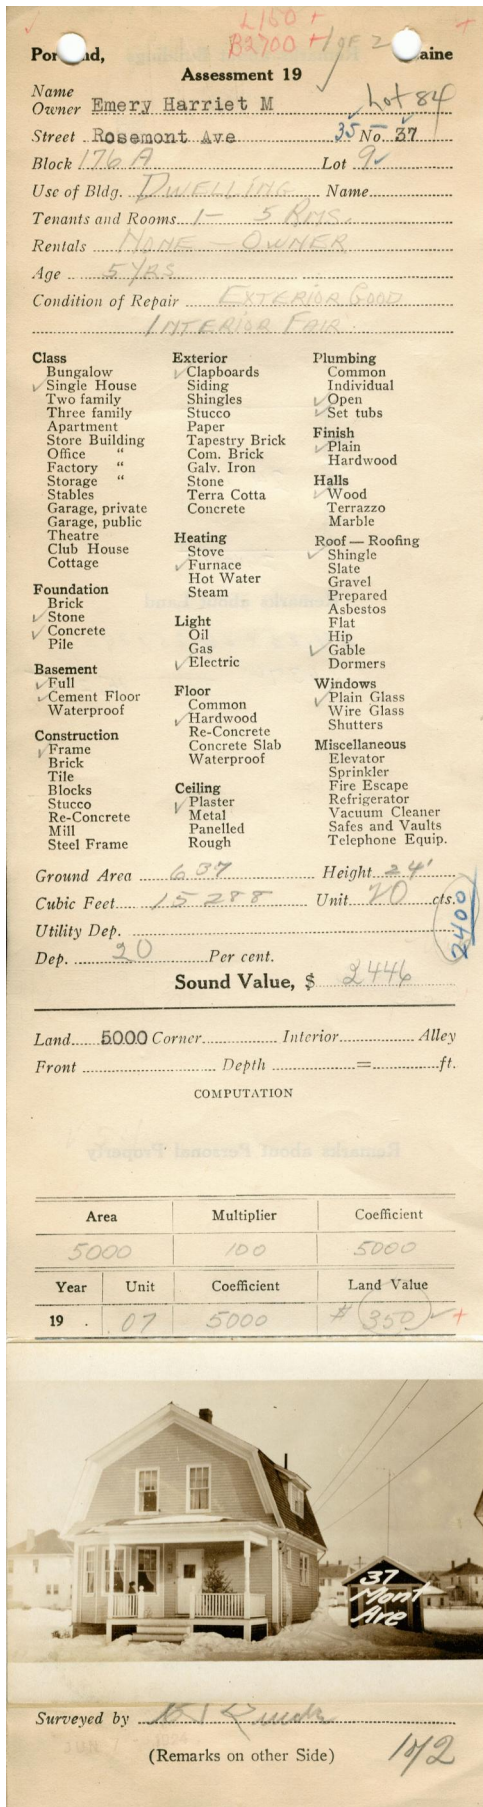 L150 +
B2700 + 1 of 2
Portland, Maine
Assessment 19
Lot 84
Name
Owner Emery Harriet M
Street Rosemont Ave 35 - No. 37
Block 176 A Lot 9
Use of Bldg. DWELLING Name
Tenants and Rooms 1 - 5 RMS.
Rentals NONE - OWNER
Age 5 YRS
Condition of Repair EXTERIOR GOOD
INTERIOR FAIR
Class
Bungalow
✓ Single House
Two family
Three family
Apartment
Store Building
Office "
Factory "
Storage "
Stables
Garage, private
Garage, public
Theatre
Club House
Cottage
Foundation
Brick
✓ Stone
✓ Concrete
Pile
Basement
✓ Full
✓ Cement Floor
Waterproof
Construction
✓ Frame
Brick
Tile
Blocks
Stucco
Re-Concrete
Mill
Steel Frame
Exterior
✓ Clapboards
Siding
Shingles
Stucco
Paper
Tapestry Brick
Com. Brick
Galv. Iron
Stone
Terra Cotta
Concrete
Heating
Stove
✓ Furnace
Hot Water
Steam
Light
Oil
Gas
✓ Electric
Floor
Common
✓ Hardwood
Re-Concrete
Concrete Slab
Waterproof
Ceiling
✓ Plaster
Metal
Panelled
Rough
Plumbing
Common
Individual
✓ Open
✓ Set tubs
Finish
✓ Plain
Hardwood
Halls
✓ Wood
Terrazzo
Marble
Roof — Roofing
✓ Shingle
Slate
Gravel
Prepared
Asbestos
Flat
Hip
✓ Gable
Dormers
Windows
✓ Plain Glass
Wire Glass
Shutters
Miscellaneous
Elevator
Sprinkler
Fire Escape
Refrigerator
Vacuum Cleaner
Safes and Vaults
Telephone Equip.
Ground Area 637 Height 24'
Cubic Feet 15288 Unit 20 cts.
2400
Utility Dep.
Dep. 20 Per cent.
Sound Value, $ 2446
Land 5000 Corner Interior Alley
Front Depth = ft.
COMPUTATION
Area Multiplier Coefficient
5000 100 5000
Year Unit Coefficient Land Value
19 . 07 5000 $ 350 ✓ +
37
Mont
Ave
Surveyed by
(Remarks on other Side) 1 of 2